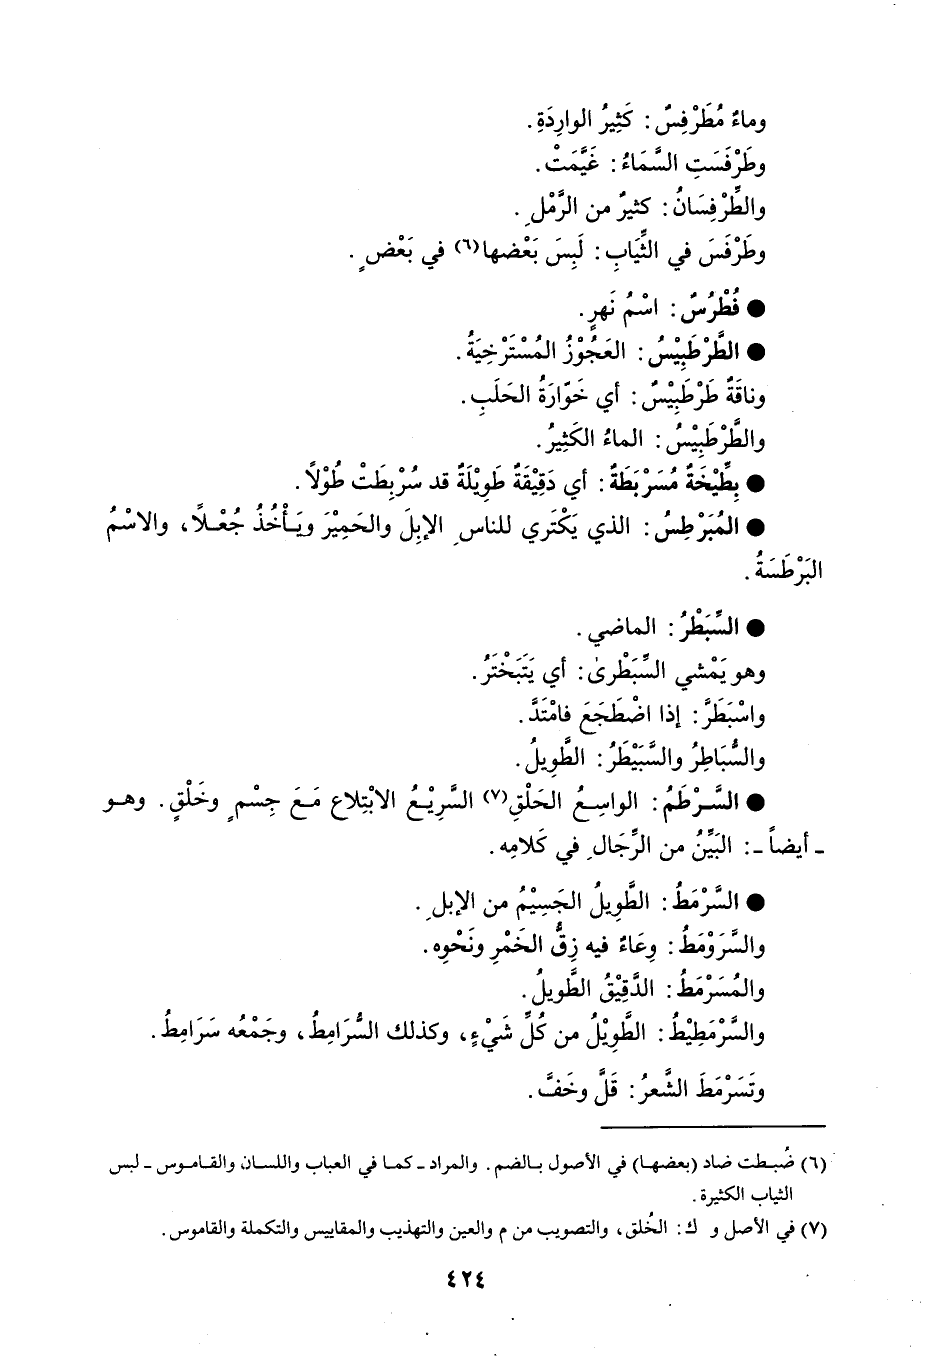 وماءٌ مُطَرْفِسٌ: كَثِيرُ الوارِدَةِ.
وطَرْفَسَتِ السَّمَاءُ: غَيَّمَتْ.
والطِّرْفِسَانُ: كثيرٌ من الرَّمْلِ.
وطَرْفَسَ في الثِّيَابِ: لَبِسَ بَعْضها(٦) في بَعْضٍ.
● فُطْرُسٌ: اسْمُ نَهرٍ.
● الطَّرْطَبِيْسُ: العَجُوْزُ المُسْتَرْخِيَةُ.
وناقَةٌ طَرْطَبِيْسٌ: أي خَوّارَةُ الحَلَبِ.
والطَّرْطَبِيْسُ: الماءُ الكَثِيرُ.
● بِطِّيْخَةٌ مُسَرْبَطَةٌ: أي دَقِيْقَةٌ طَوِيْلَةٌ قد سُرْبِطَتْ طُوْلاً.
● المُبَرْطِسُ: الذي يَكْتَري للناسِ الإبِلَ والحَمِيْرَ ويَأْخُذُ جُعْلاً، والاسْمُ
البَرْطَسَةُ.
● السِّبَطْرُ: الماضي.
وهو يَمْشي السِّبَطْرىٰ: أي يَتَبَخْتَرُ.
واسْبَطَرَّ: إذا اضْطَجَعَ فامْتَدَّ.
والسُّبَاطِرُ والسَّبَيْطَرُ: الطَّوِيلُ.
● السَّرْطَمُ: الواسِعُ الحَلْقِ(٧) السَّرِيْعُ الابْتِلاعِ مَعَ جِسْمٍ وخَلْقٍ. وهو
ـ أيضاً ـ: البَيِّنُ من الرِّجَالِ في كَلامِه.
● السَّرْمَطُ: الطَّوِيلُ الجَسِيْمُ من الإبلِ.
والسَّرَوْمَطُ: وِعَاءٌ فيه زِقُّ الخَمْرِ ونَحْوِه.
والمُسَرْمَطُ: الدَّقِيْقُ الطَّويلُ.
والسَّرْمَطِيْطُ: الطَّوِيْلُ من كُلِّ شَيْءٍ، وكذلك السُّرَامِطُ، وجَمْعُه سَرَامِطُ.
وتَسَرْمَطَ الشَّعرُ: قَلَّ وخَفَّ.
(٦) ضُبطت ضاد (بعضها) في الأصول بالضم. والمراد ـ كما في العباب واللسان والقاموس ـ لبس
الثياب الكثيرة.
(٧) في الأصل و ك: الخُلق، والتصويب من م والعين والتهذيب والمقاييس والتكملة والقاموس.
٤٢٤